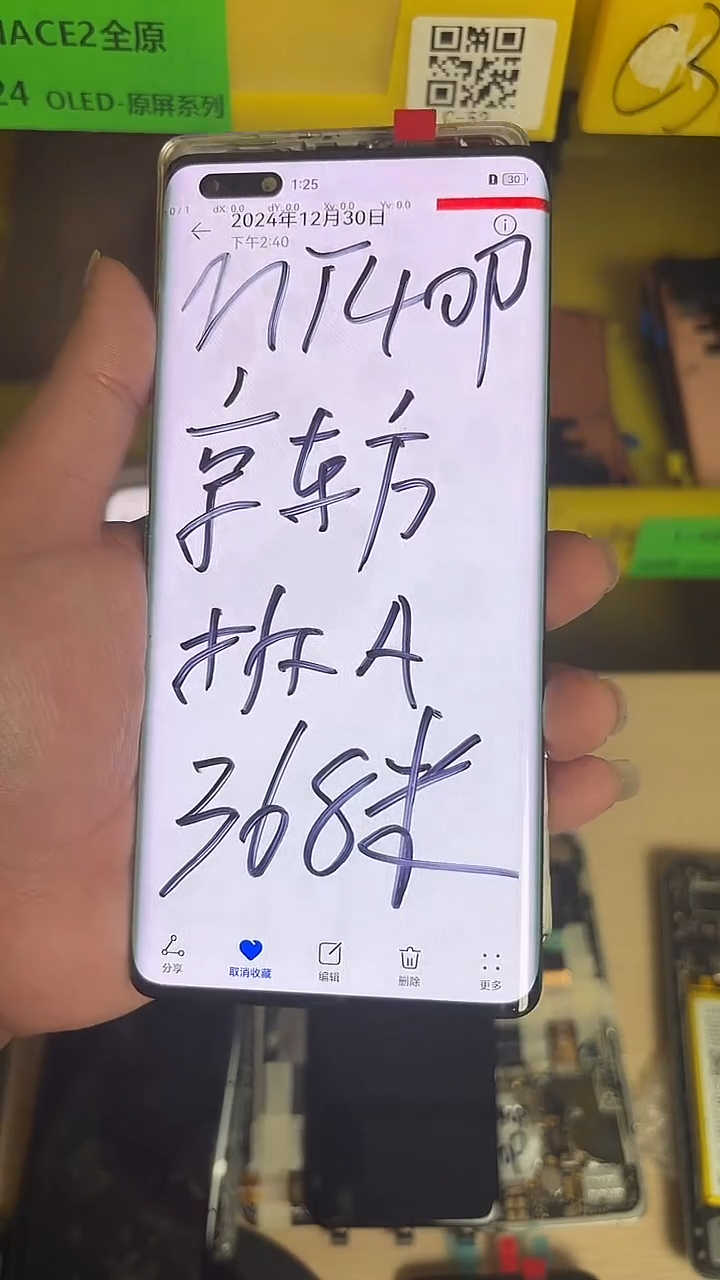 ACE2全原
24 OLED-原屏系列
C-52
C3
1:25
30
0/1 dX: 0.0 dY: 0.0 Xv: 0.0 Yv: 0.0
2024年12月30日
下午2:40
MT40P
京东方
拆A
368米
分享
取消收藏
编辑
删除
更多